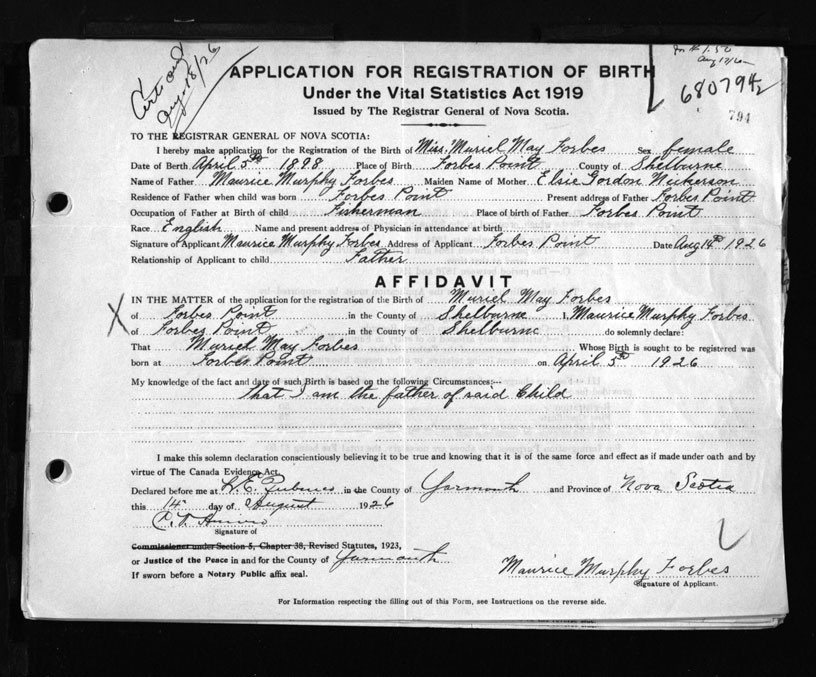 Aug. 18/26
APPLICATION FOR REGISTRATION OF BIRTH
Under the Vital Statistics Act 1919
Issued by The Registrar General of Nova Scotia.
680794½
794
TO THE REGISTRAR GENERAL OF NOVA SCOTIA:
I hereby make application for the Registration of the Birth of Miss. Muriel May Forbes Sex female
Date of Birth April 5th 1898 Place of Birth Forbes Point County of Shelburne
Name of Father Maurice Murphy Forbes Maiden Name of Mother Elsie Gordon Nickerson
Residence of Father when child was born Forbes Point Present address of Father Forbes Point
Occupation of Father at Birth of child Fisherman Place of birth of Father Forbes Point
Race English Name and present address of Physician in attendance at birth
Signature of Applicant Maurice Murphy Forbes Address of Applicant Forbes Point Date Aug 14th 1926
Relationship of Applicant to child Father
AFFIDAVIT
IN THE MATTER of the application for the registration of the Birth of Muriel May Forbes
X of Forbes Point in the County of Shelburne I, Maurice Murphy Forbes
of Forbes Point in the County of Shelburne do solemnly declare:
That Muriel May Forbes Whose Birth is sought to be registered was
born at Forbes Point on April 5th 1926
My knowledge of the fact and date of such Birth is based on the following Circumstances:—
That I am the father of said Child
I make this solemn declaration conscientiously believing it to be true and knowing that it is of the same force and effect as if made under oath and by
virtue of The Canada Evidence Act.
Declared before me at in the County of Yarmouth and Province of Nova Scotia
this 14 day of August 1926
Signature of
Commissioner under Section 5, Chapter 38, Revised Statutes, 1923,
or Justice of the Peace in and for the County of Yarmouth
If sworn before a Notary Public affix seal.
Maurice Murphy Forbes
Signature of Applicant.
For Information respecting the filling out of this Form, see Instructions on the reverse side.